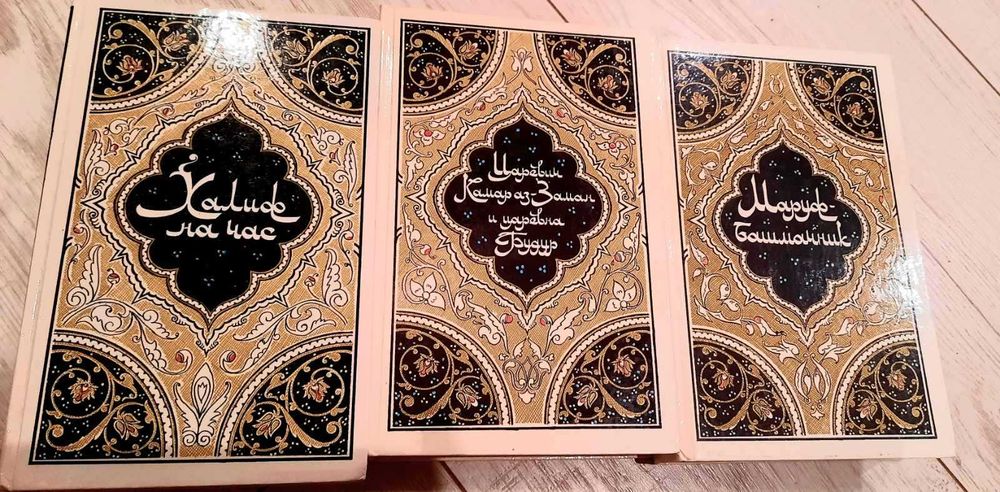 Халиф
на час
Царевич
Камар аз-Заман
и царевна
Будур
Маруф-
башмачник